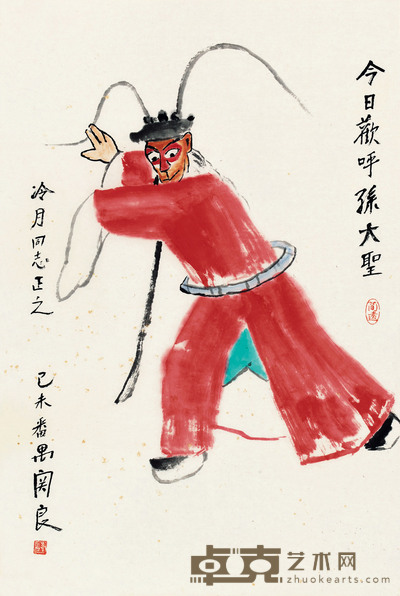 今日歡呼孫大聖
冷月同志正之
己未番禺関良
卓克艺术网
zhuokearts.com